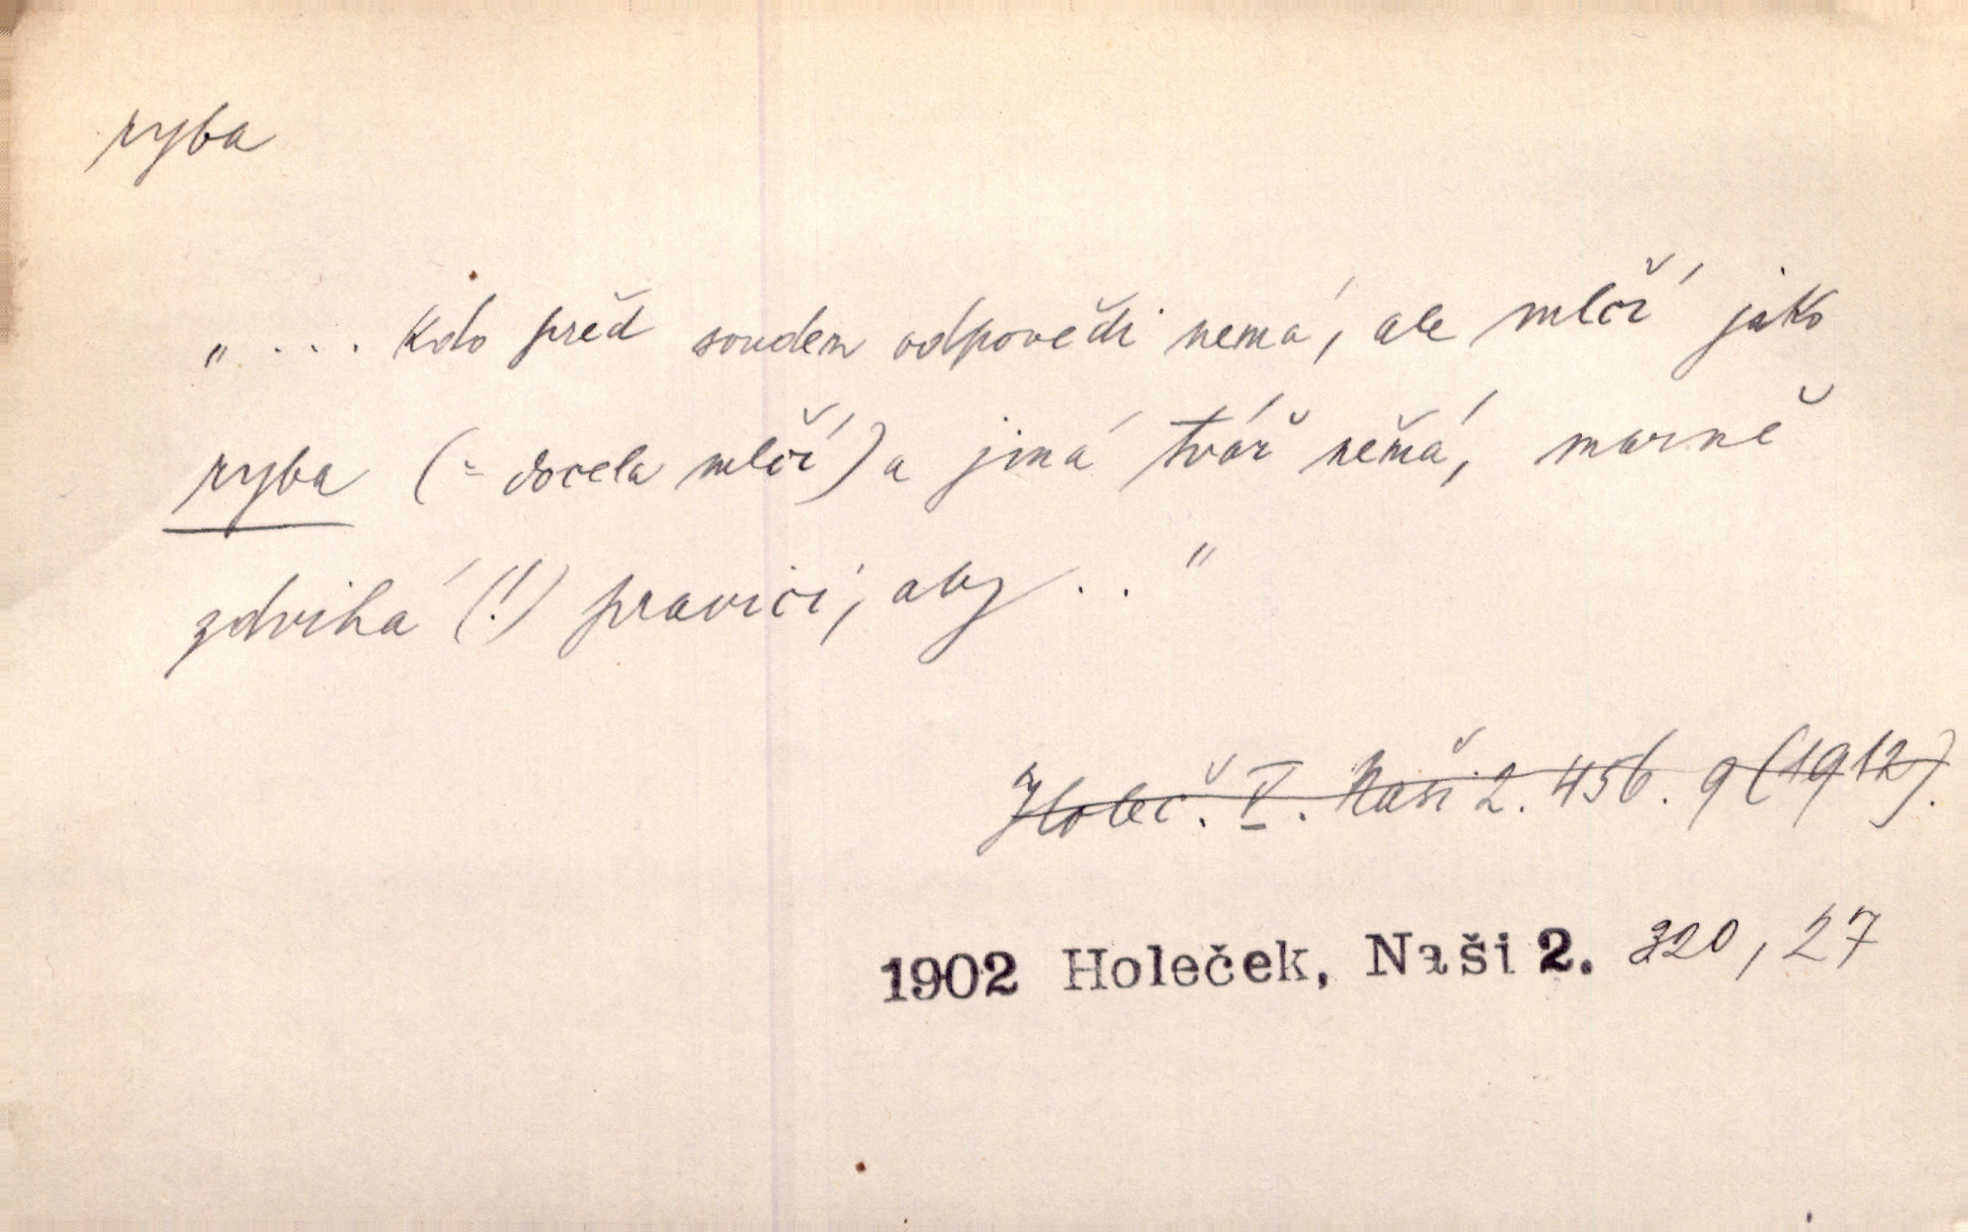 ryba
„ . . . Kdo před soudem odpovědi nemá, ale mlčí jako
ryba (= docela mlčí) a jiná tvář němá, marně
zdvihá (!) pravici, aby . . "
Holeč. V. Naši 2. 456. 9 (1912).
1902 Holeček, Naši 2. 320, 27